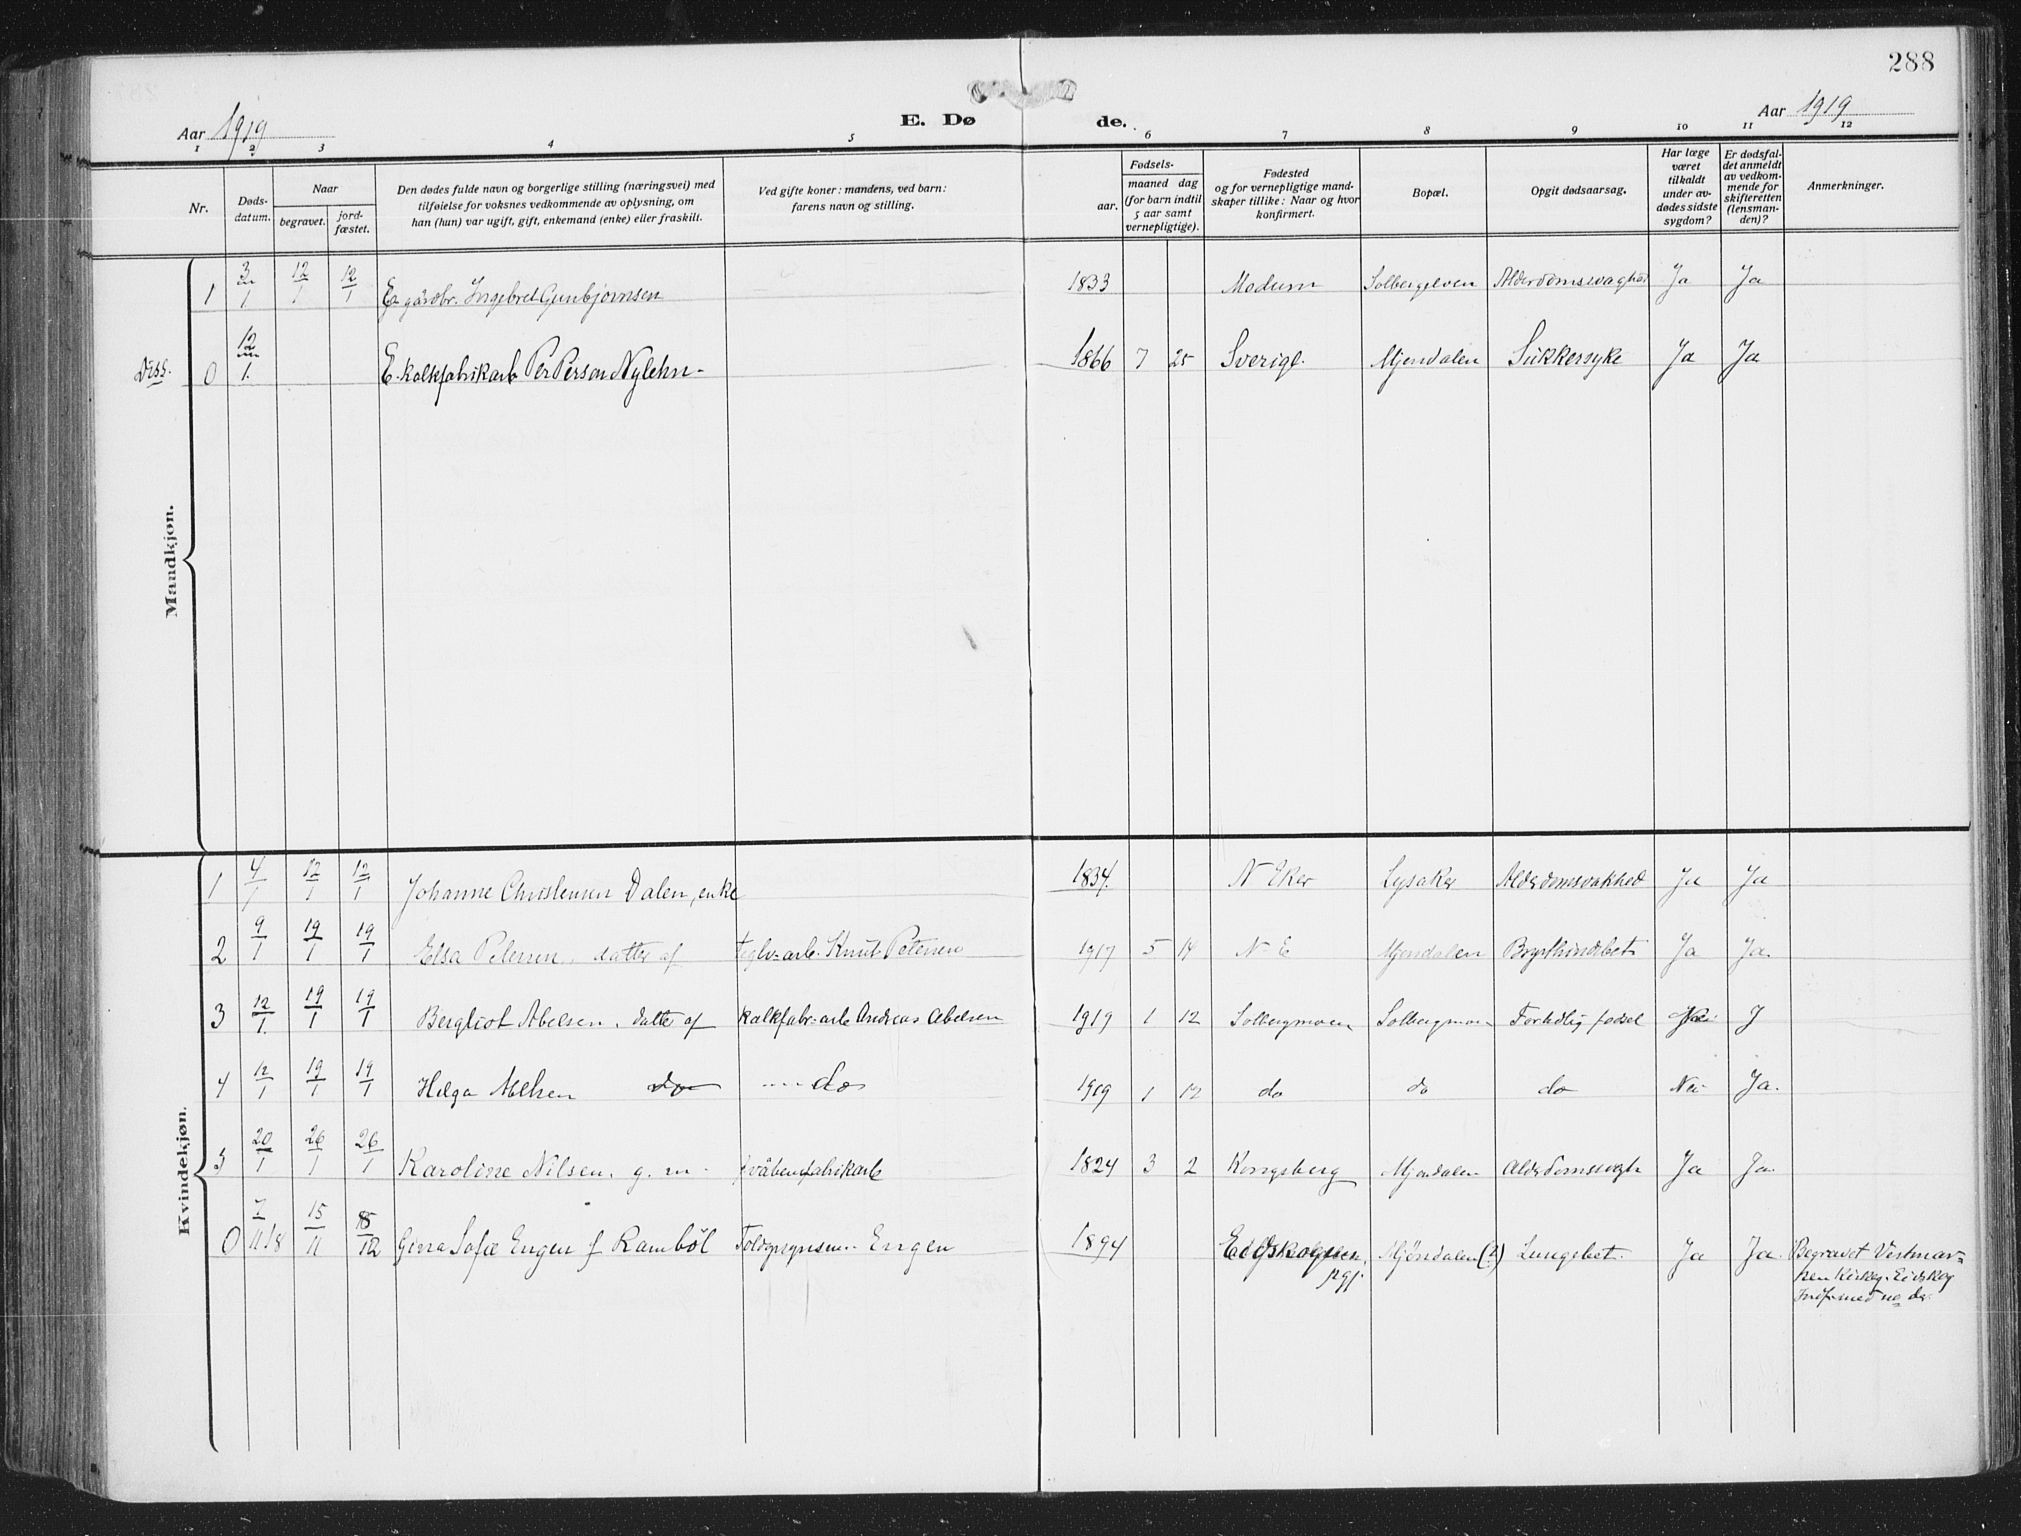 288
Aar 1919
E. Dø
de.
Aar 1919
1 2 3 4 5 6 7 8 9 10 11 12
Nr.
Døds-
datum.
Naar
begravet.
jord-
fæstet.
Den dødes fulde navn og borgerlige stilling (næringsvei) med
tilføielse for voksnes vedkommende av oplysning, om
han (hun) var ugift, gift, enkemand (enke) eller fraskilt.
Ved gifte koner: mandens, ved barn:
farens navn og stilling.
Fødsels-
aar.
maaned dag
(for barn indtil
5 aar samt
vernepligtige).
Fødested
og for vernepligtige mand-
skaper tillike: Naar og hvor
konfirmert.
Bopæl.
Opgit dødsaarsag.
Har læge
været
tilkaldt
under av-
dødes sidste
sygdom?
Er dødsfal-
det anmeldt
av vedkom-
mende for
skifteretten
(lensman-
den)?
Anmerkninger.
Mandkjøn.
1 3/1 12/1 12/1 E. gårdbr. Ingebret Gunbjørnsen 1833 Modum Solbergelven Ja Ja
Diss. 0 12/1 E. kalkfabrikarb Per Person Nylehn 1866 7 25 Sverige Mjøndalen Sukkersyke Ja Ja
Kvindekjøn.
1 4/1 12/1 12/1 Johanne Christensen Dalen, enke 1834. N Eker Lysaker Alderdomsvakhed Ja Ja
2 9/1 19/1 19/1 Elsa Petersen, datter af teglv-arb. Knut Petersen 1917 5 14 N E Mjøndalen Ja Ja.
3 12/1 19/1 19/1 Bergliot Abelsen, datter af kalkfabr-arb Andreas Abelsen 1919 1 12 Solbergmoen Solbergmoen Fortidlig fødsel J
4 12/1 19/1 19/1 Helga Abelsen do do 1919 1 12 do do do Nei Ja.
5 20/1 26/1 26/1 Karoline Nilsen, g. m. våbenfabrikarb 1824 3 2 Kongsberg Mjøndalen Ja Ja
0 7/11 18 15/11 Gina Sofie Engen f Rambøl Engen 1894 Mjøndalen (?) Lungebet. Ja Ja. Begravet Vestmar-
pgj.
ken Kirkeg. Eidskog